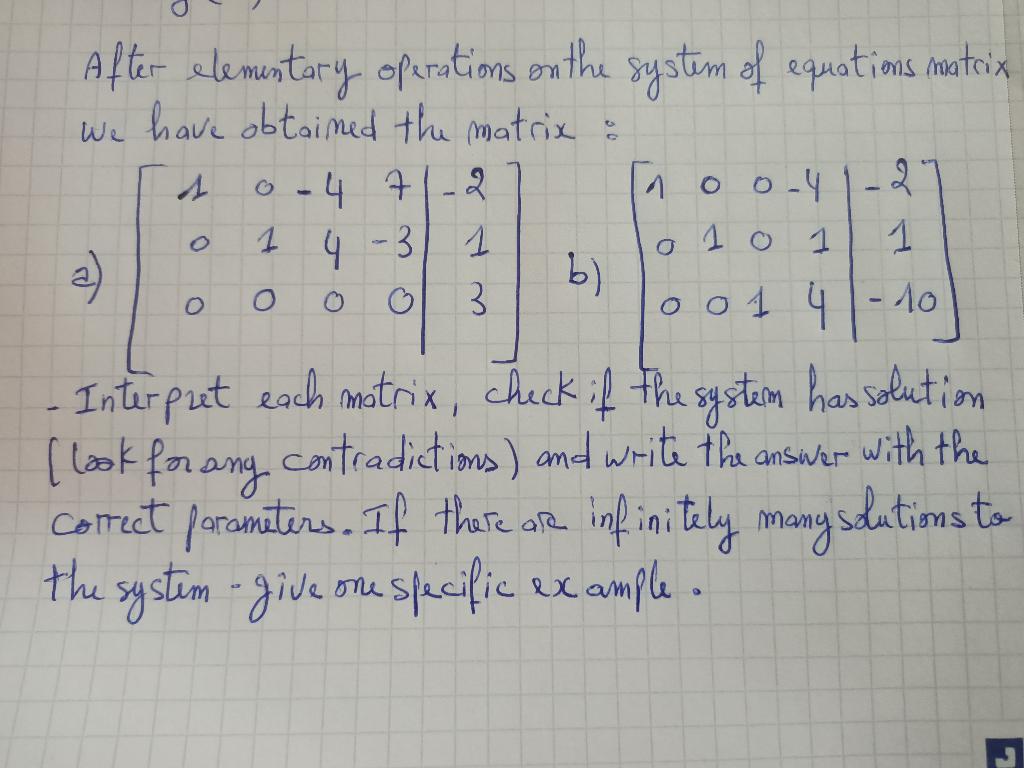 After elementary operations on the system of equations matrix
we have obtained the matrix :
a) [ 1 0 -4 7 | -2 ] b) [ 1 0 0 -4 | -2 ]
[ 0 1 4 -3 | 1 ] [ 0 1 0 1 | 1 ]
[ 0 0 0 0 | 3 ] [ 0 0 1 4 | -10 ]
- Interpret each matrix, check if the system has solution
(look for any contradictions) and write the answer with the
correct parameters. If there are infinitely many solutions to
the system - give one specific example.